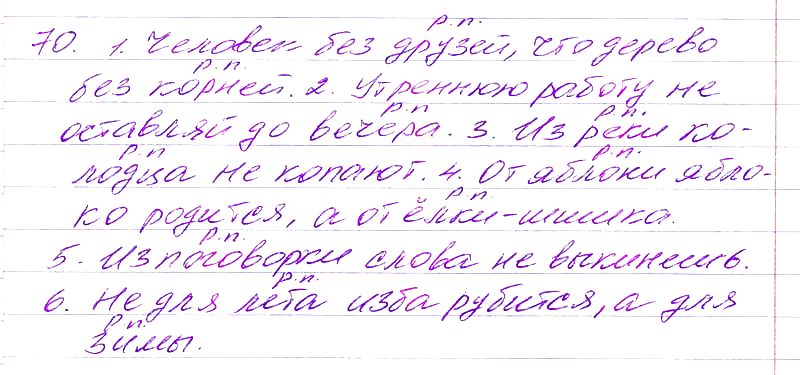 р.п.
70. 1. Человек без друзей, что дерево
р.п.
без корней. 2. Утреннюю работу не
р.п р.п.
оставляй до вечера. 3. Из реки ко-
р.п р.п.
лодца не копают. 4. От яблони ябло-
р.п.
ко родится, а от ёлки-шишка.
р.п.
5. Из поговорки слова не выкинешь.
р.п.
6. Не для лета изба рубится, а для
р.п.
зимы.